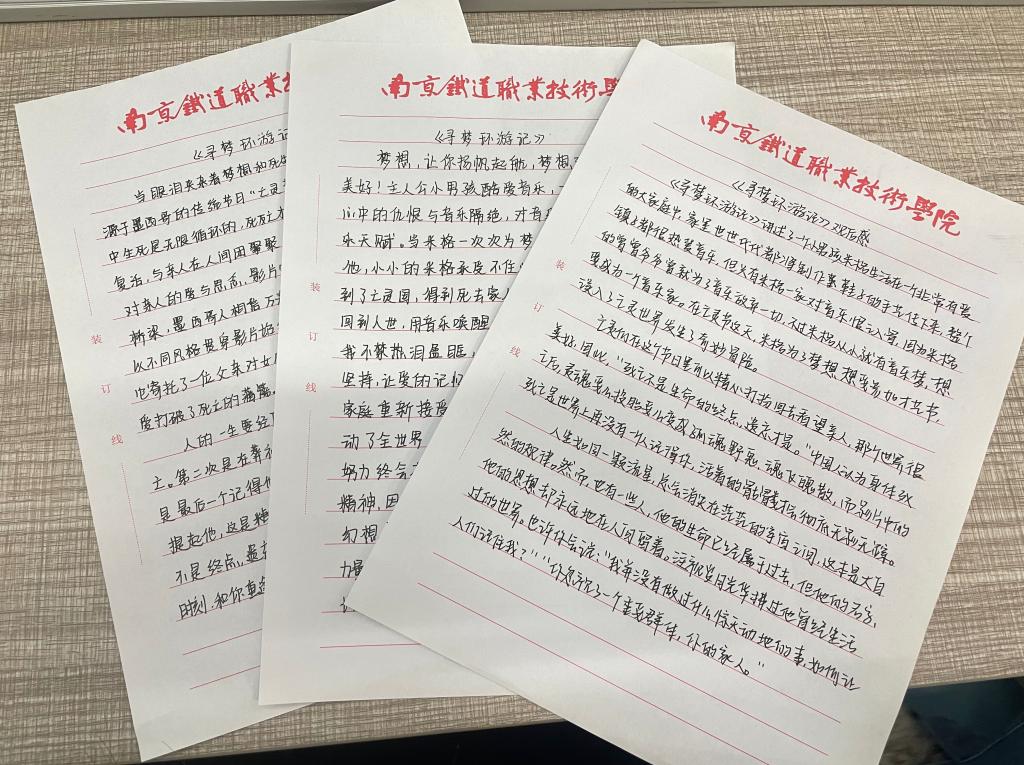 南京鐵道職業技
《寻梦环游记
当眼泪夹杂着梦想和死
源于墨西哥的传统节日“亡灵
中生死是无限循环的,死死
复活,与亲人在人间团聚
对亲人的爱与思念,影片
桥梁,墨西哥人相信万
以不同风格贯穿影片始
也寄托了一位父亲对女儿
爱打破了死亡的藩篱。
人的一生要经
土。第二次是在葬礼
是最后一个记得他
提起他,这是
不是终点,
时刻.和你
装
订
线
南京鐵道職業技術學
《寻梦环游记》
梦想,让你扬帆起航,梦想
美好!主人公小男孩酷爱音乐,
心中的仇恨与音乐隔绝,对音
乐天赋。当米格一次次为梦
他,小小的米格承受不住
到了亡灵国,得到死去家
回到人世,用音乐唤醒
我不禁热泪盈眶,
坚持,让爱的记忆
家庭重新接受
动了全世界
努力终会
精神,因
幻想
力量
装
订
线
南京鐵道職業技術學院
《寻梦环游记》观后感
《寻梦环游记》讲述了一个小男孩米格生活在一个非常有爱
的大家庭中,家里世世代代都以制作皮鞋子的手艺传下来,整个
镇子都很热爱音乐,但只有米格一家对音乐恨之入骨,因为米格
的曾曾爷爷曾就为了音乐放弃一切,不过米格从小就有音乐梦,想
要成为一个音乐家。在亡灵节这天,米格为了梦想想参加才艺节,
误入了亡灵世界发生了奇妙冒险。
亡灵们在这个节日里可以精心打扮回去看望亲人,那个世界很
美好,因此,“死亡不是生命的终点,遗忘才是。”中国人认为身体死
亡后,灵魂要么投胎要么变成孤魂野鬼,魂飞魄散,而影片中的
死亡是世界上再没有一人记得你,活着的骷髅会彻底无影无踪。
人生如同一颗流星,总会消失在茫茫的宇宙之间,这本是大自
然的规律。然而,也有一些人,他的生命已经属于过去,但他的名字,
他的思想却永远地在人间留着。没就岁月光华拂过他曾经生活
过的世界。也许你会说:“我并没有做过什么惊天动地的事,如何让
人们记住我?”“你忽视了一个重要群体,你的家人。”
装
订
线